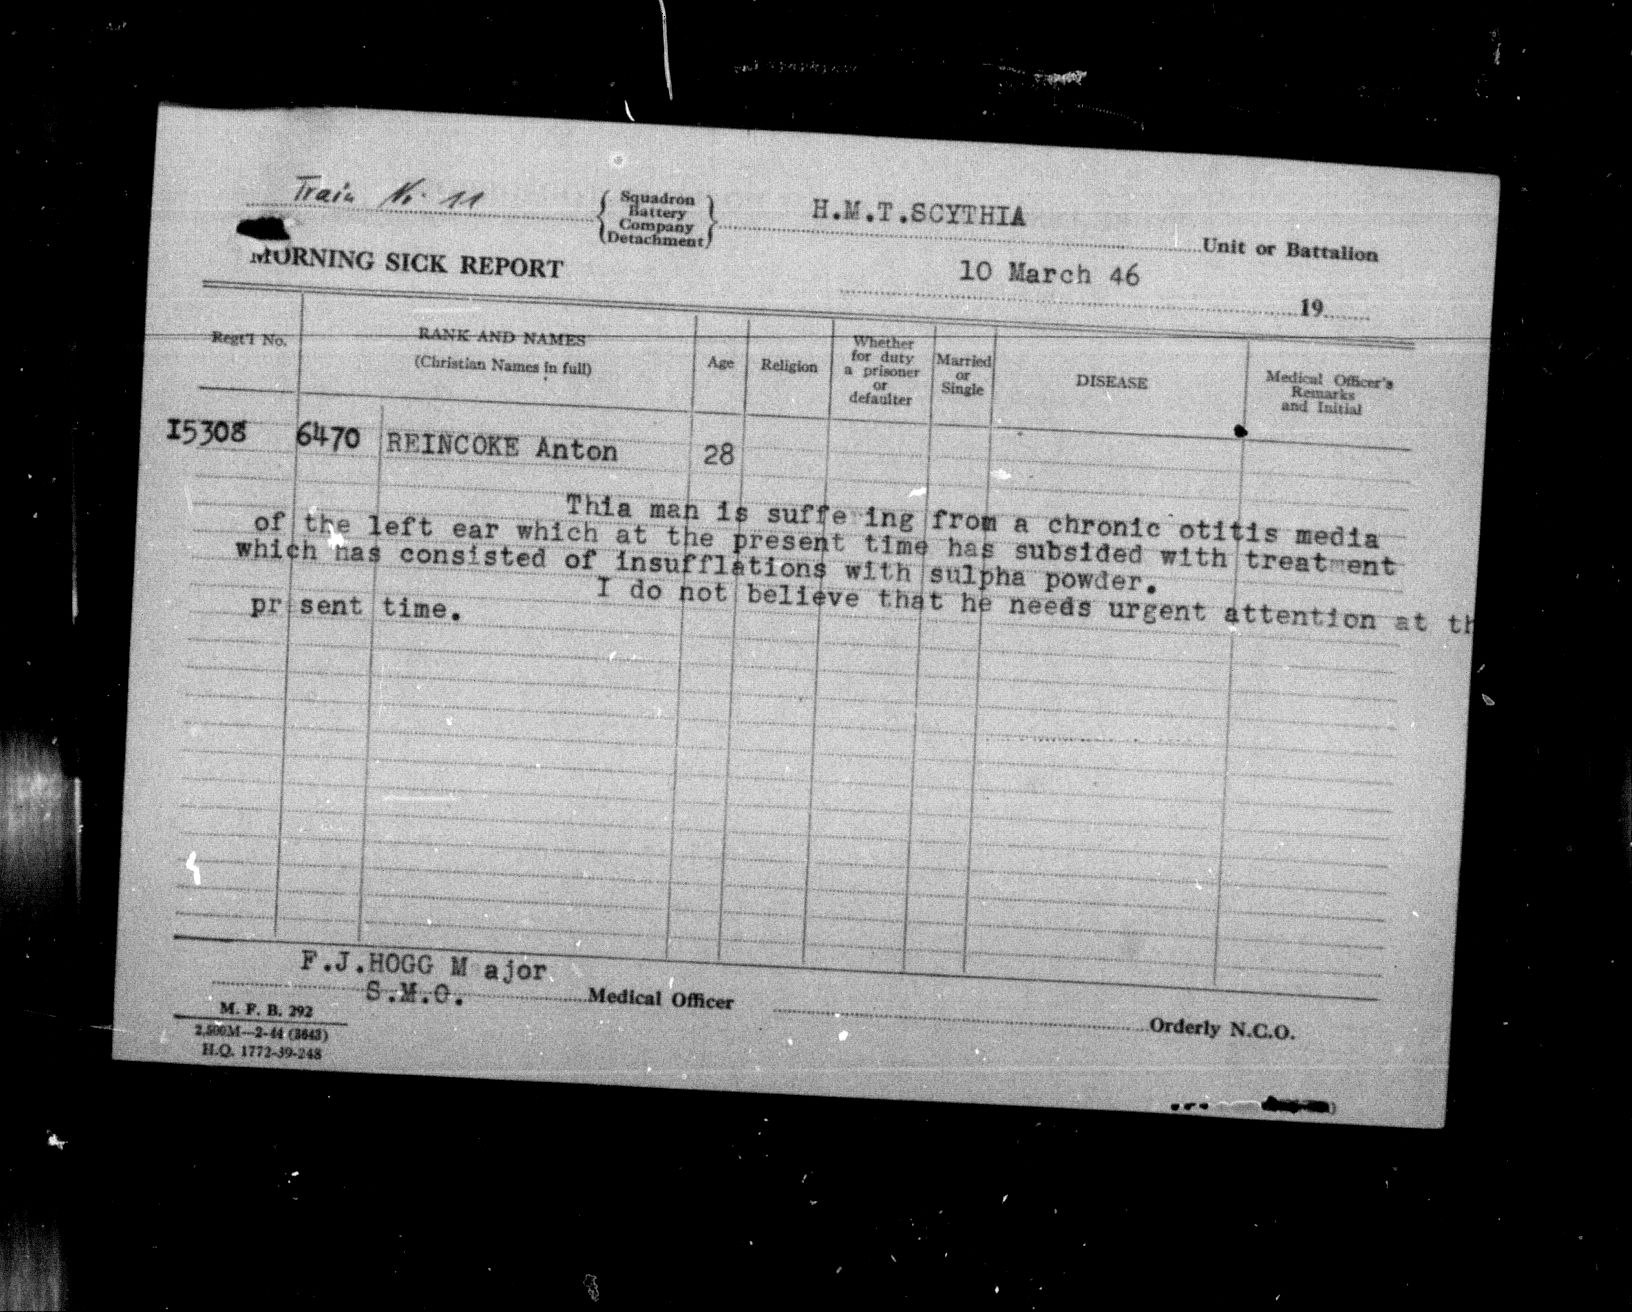 Train No. 11
Squadron
Battery
Company
Detachment
H.M.T.SCYTHIA
Unit or Battalion
MORNING SICK REPORT
10 March 46
19
Regt'l No.
RANK AND NAMES
(Christian Names in full)
Age
Religion
Whether
for duty
a prisoner
or
defaulter
Married
or
Single
DISEASE
Medical Officer's
Remarks
and Initial
I5308 6470 REINCOKE Anton 28
Thia man is suffe ing from a chronic otitis media
of the left ear which at the present time has subsided with treatment
which has consisted of insufflations with sulpha powder.
I do not believe that he needs urgent attention at th
pr sent time.
F.J.HOGG M ajor
S.M.O.
Medical Officer
Orderly N.C.O.
M. F. B. 292
2,500M—2-44 (3643)
H.Q. 1772-39-248